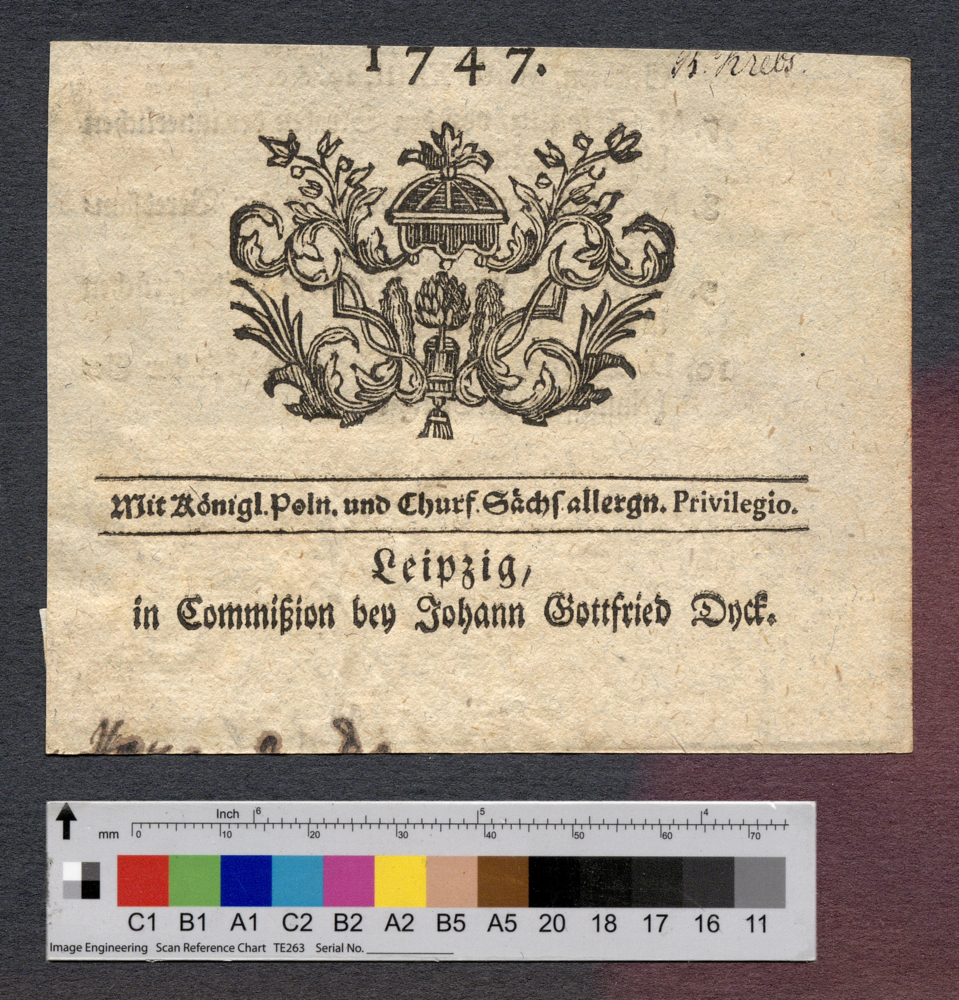 1747.
B. Krebs.
Mit Königl. Poln. und Churf. Sächs. allergn. Privilegio.
Leipzig,
in Commißion bey Johann Gottfried Dyck.
Inch 6 5 4
mm 0 10 20 30 40 50 60 70
C1 B1 A1 C2 B2 A2 B5 A5 20 18 17 16 11
Image Engineering Scan Reference Chart TE263 Serial No.